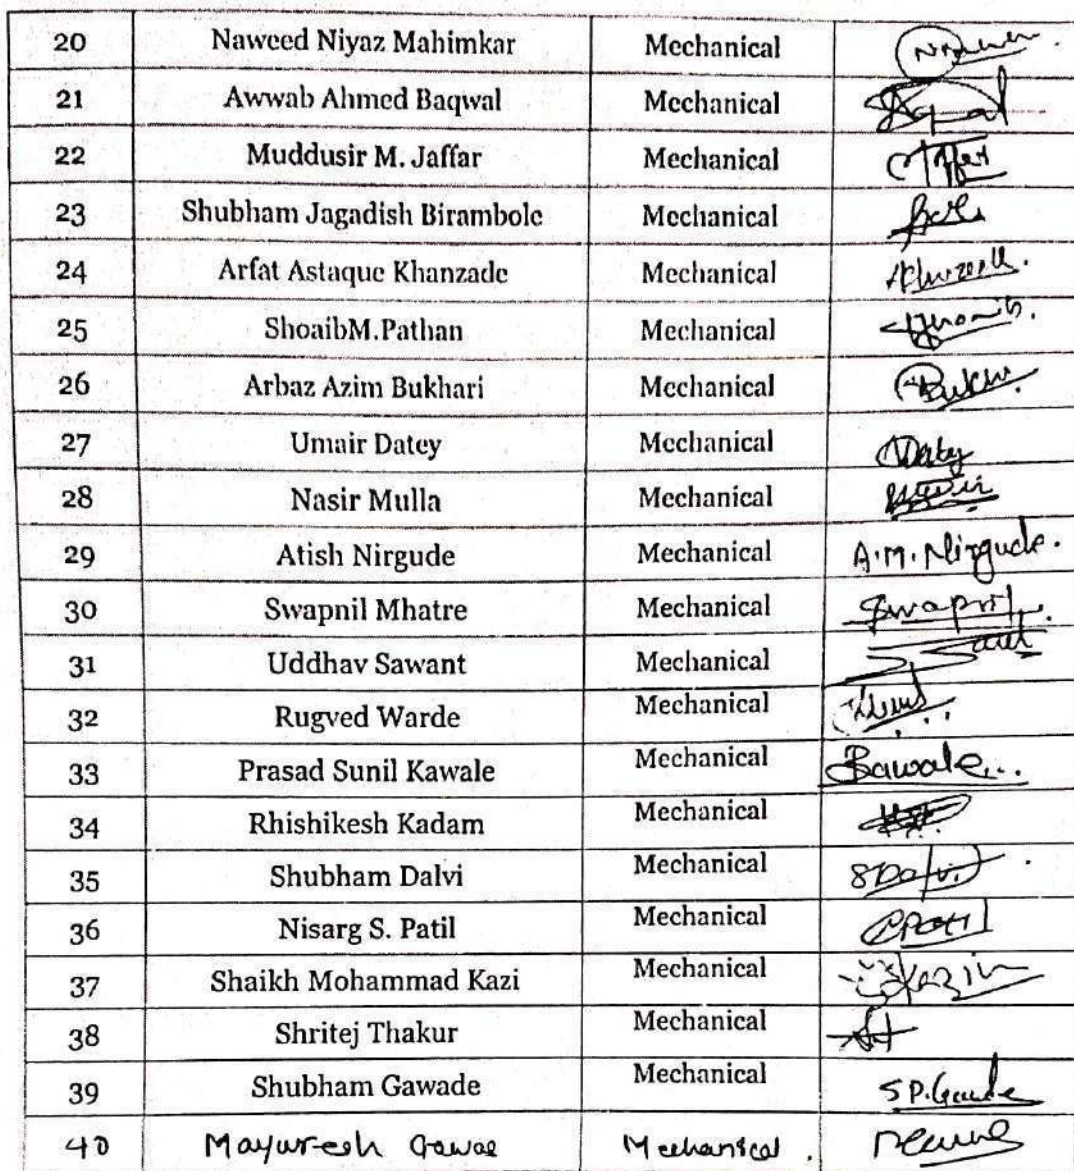 20 Naweed Niyaz Mahimkar Mechanical
21 Awwab Ahmed Baqwal Mechanical
22 Muddusir M. Jaffar Mechanical
23 Shubham Jagadish Birambole Mechanical
24 Arfat Astaque Khanzade Mechanical
25 ShoaibM.Pathan Mechanical
26 Arbaz Azim Bukhari Mechanical
27 Umair Datey Mechanical
28 Nasir Mulla Mechanical
29 Atish Nirgude Mechanical A.M. Nirgude.
30 Swapnil Mhatre Mechanical Swapnil
31 Uddhav Sawant Mechanical
32 Rugved Warde Mechanical
33 Prasad Sunil Kawale Mechanical
34 Rhishikesh Kadam Mechanical
35 Shubham Dalvi Mechanical SDalvi
36 Nisarg S. Patil Mechanical
37 Shaikh Mohammad Kazi Mechanical
38 Shritej Thakur Mechanical
39 Shubham Gawade Mechanical S.P.Gawde
40 Mayuresh Mechanical.